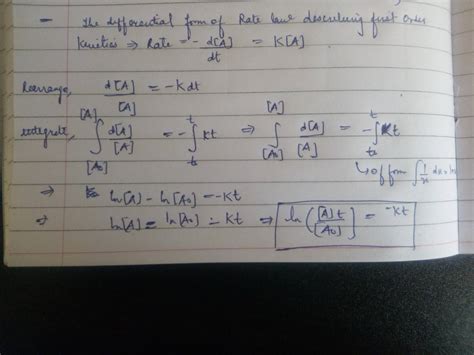 – The differential form of Rate law describing first Order
Kinetics ⇒ Rate = - d[A]/dt = K[A]
Rearrange, d[A]/[A] = -K dt
integrate, ∫_[A₀]^[A] d[A]/[A] = -∫_t₀^t Kt ⇒ ∫_[A₀]^[A] d[A]/[A] = -∫_t₀^t Kt
↳ of form ∫ 1/x dx =
⇒ ln[A] - ln[A₀] = -Kt
⇒ ln[A] = ln[A₀] - Kt ⇒ ln([A]t/[A₀]] = -Kt